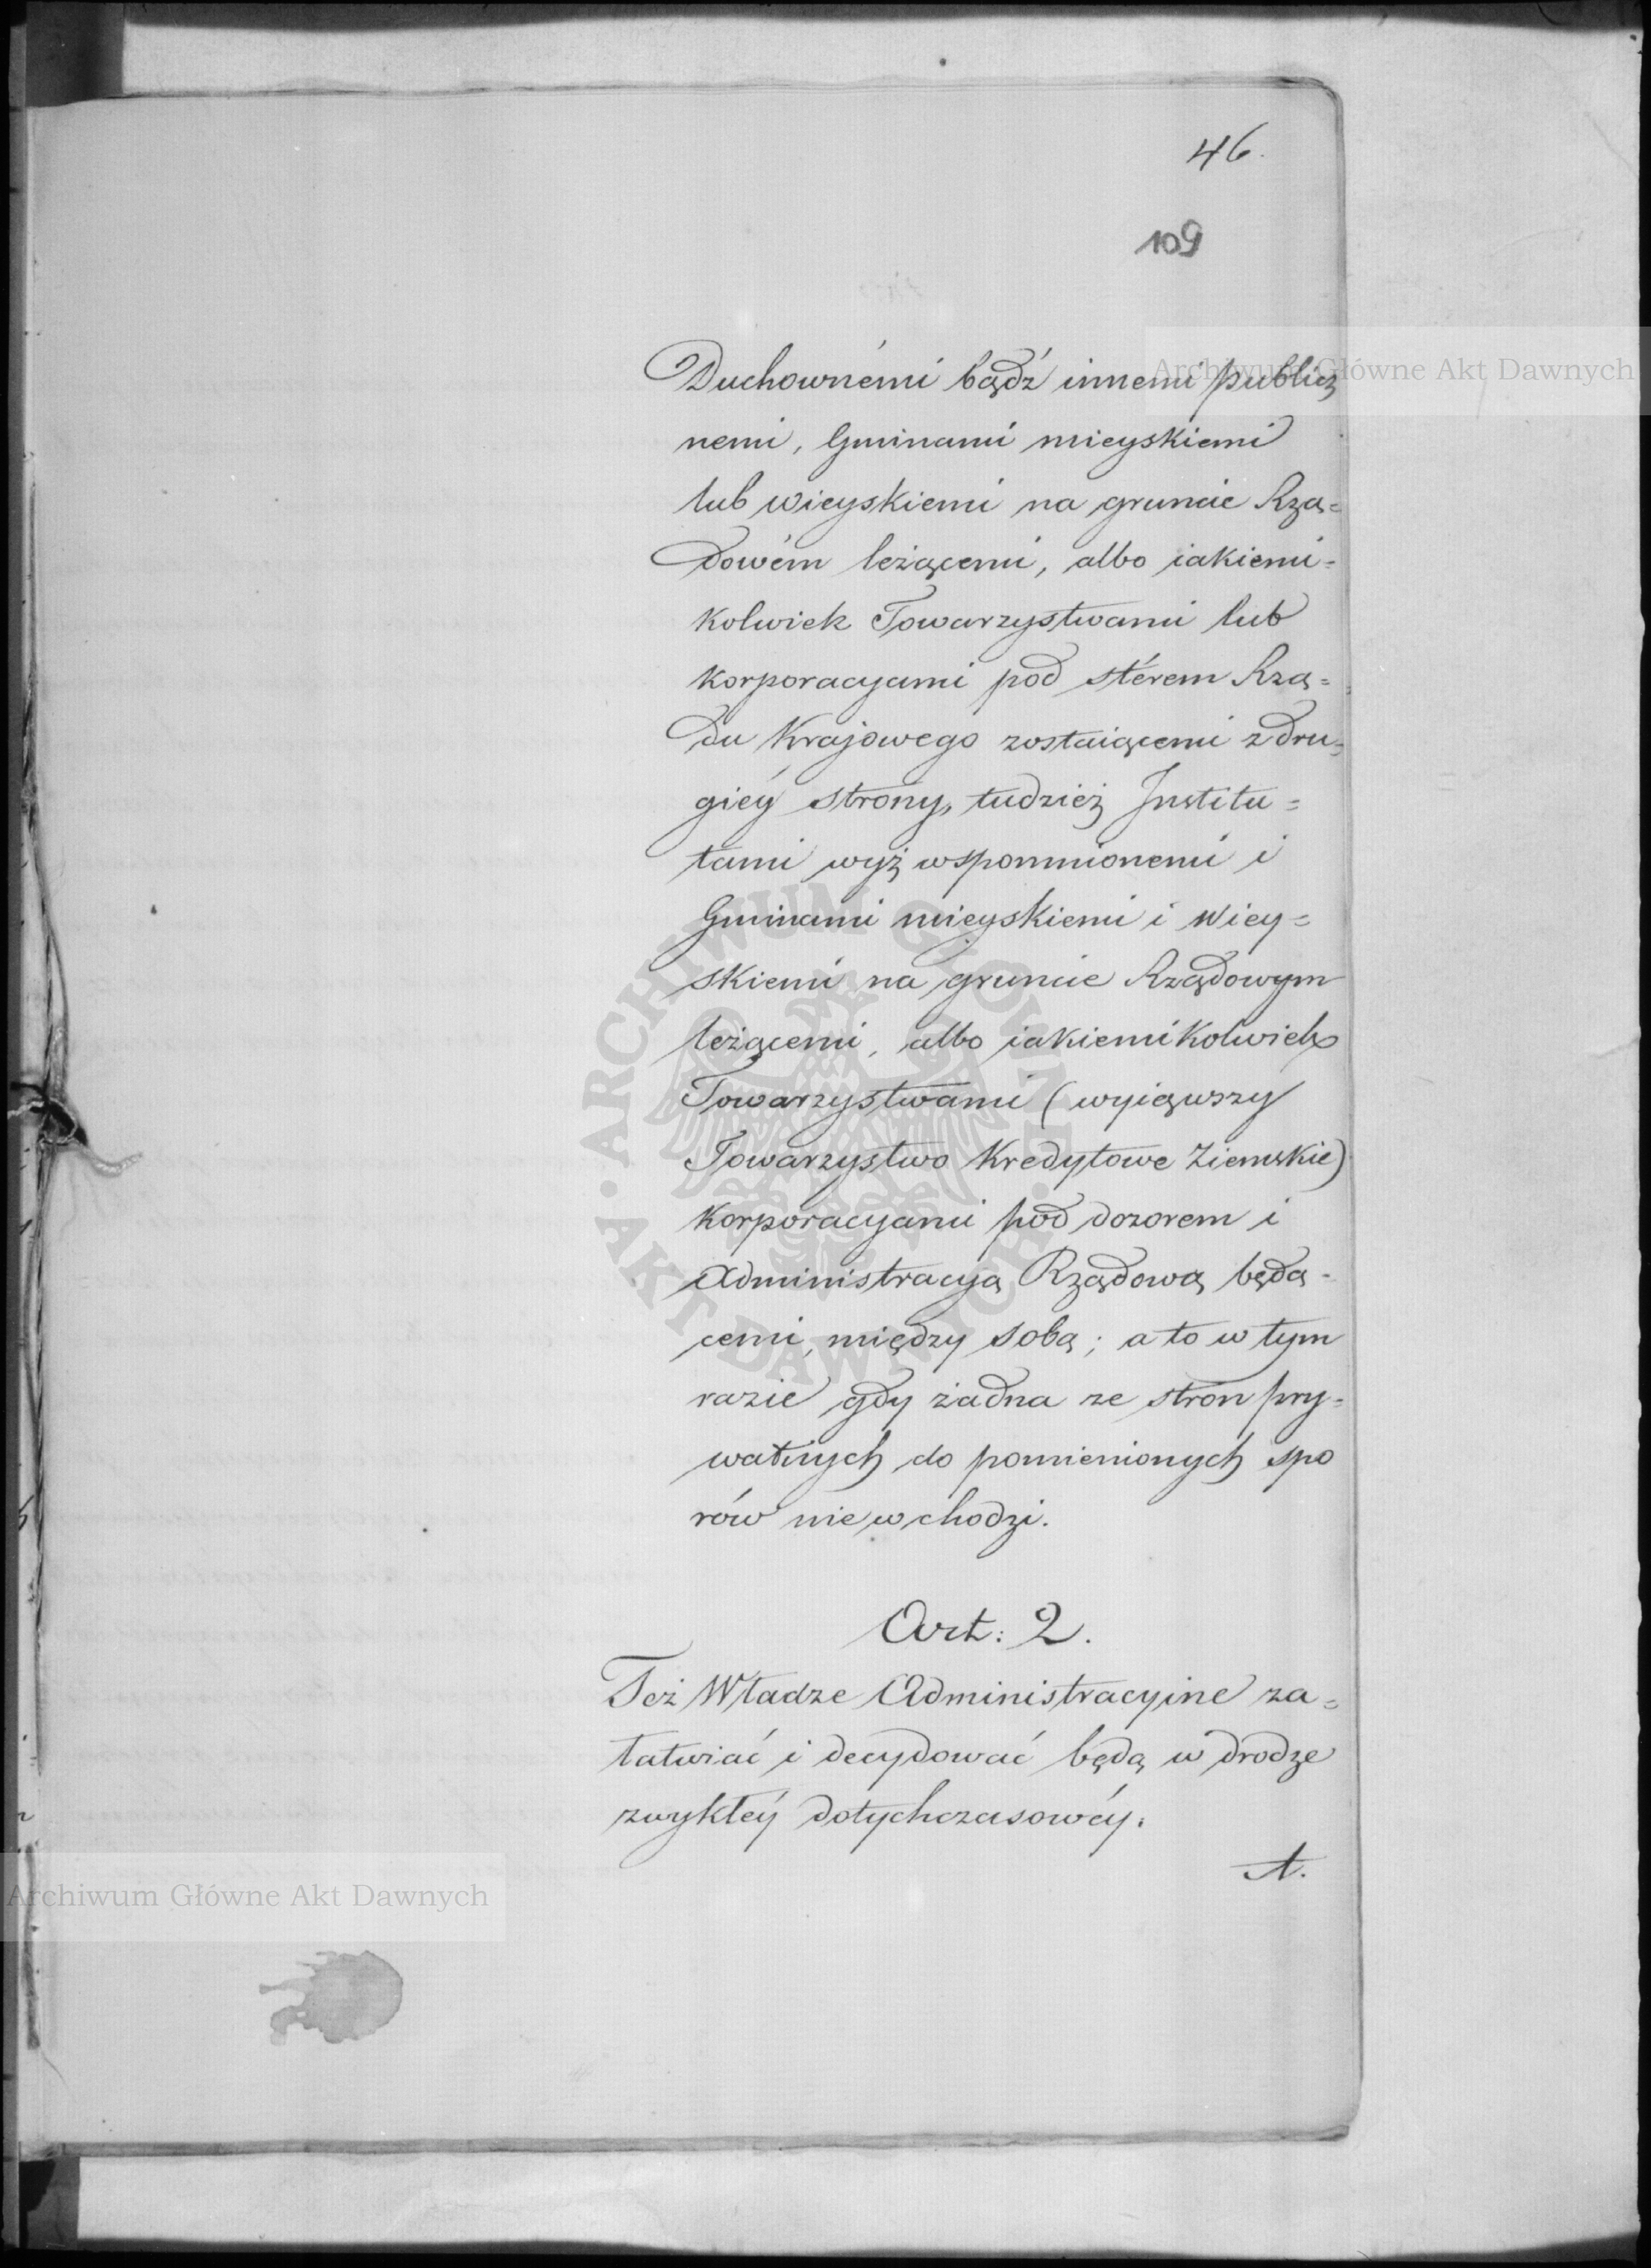 46.
109
Duchownémi bądź innemi publicz
nemi, Gminami mieyskiemi
lub wieyskiemi na gruncie Rzą=
dowém leżącemi, albo iakiemi=
kolwiek Towarzystwami lub
korporacyami pod stérem Rzą=
du Krajowego zostaiącemi z dru=
giéy strony, tudzież Institu=
tami wyż wspomnionemi i
Gminami mieyskiemi i Wiey=
skiemi na gruncie Rządowym
leżącemi, albo iakiemikolwiek
Towarzystwami (wyiąwszy
Towarzystwo Kredytowe Ziemskie)
korporacyami pod dozorem i
Administracyą Rządową będą=
cemi, między sobą; a to w tym
razie gdy żadna ze stron pry=
watnych do pomienionych spo
rów nie wchodzi.
Art: 2.
Też Władze Administracyine za=
łatwiać i decydować będą w drodze
zwykłéy dotychczasowéy:
A.
Archiwum Główne Akt Dawnych
Archiwum Główne Akt Dawnych
ARCHIWUM GŁÓWNE · AKT DAWNYCH ·